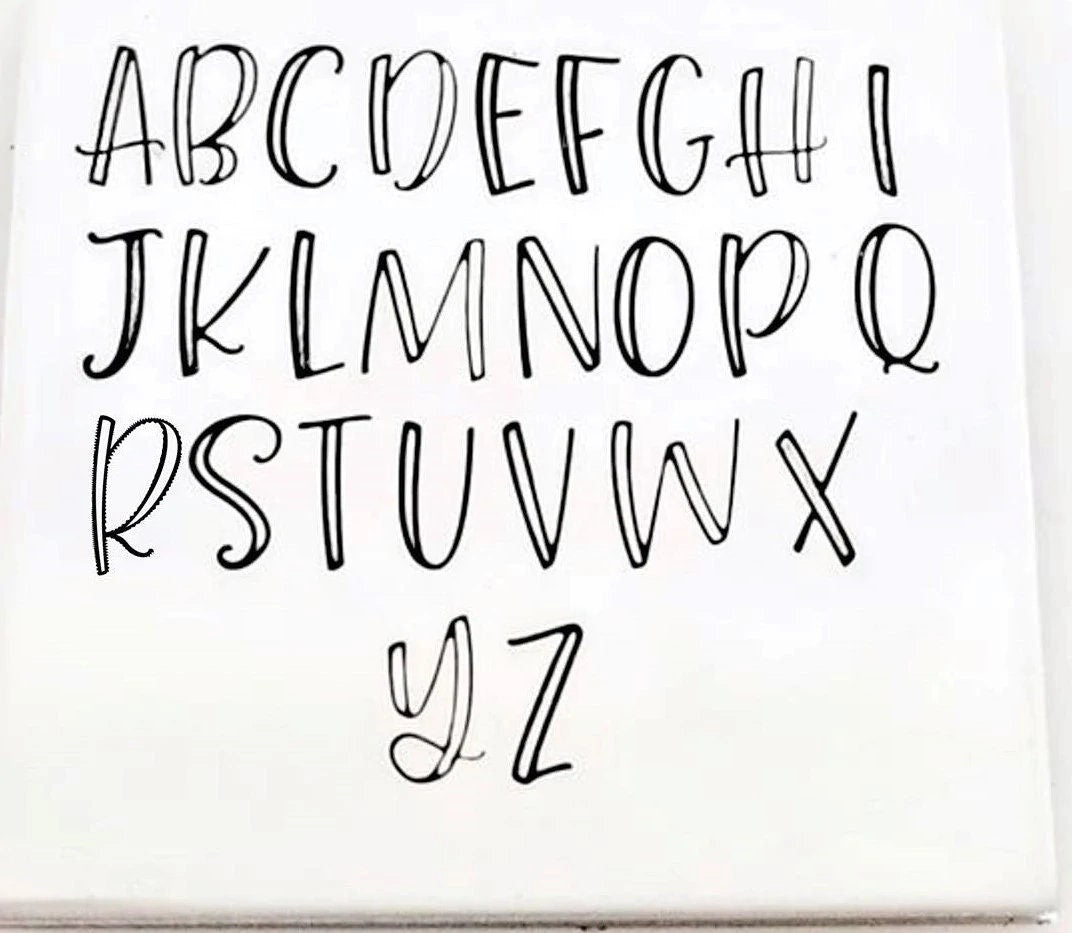 ABCDEFGH I
JKLMNOP Q
RSTUVWX
YZ